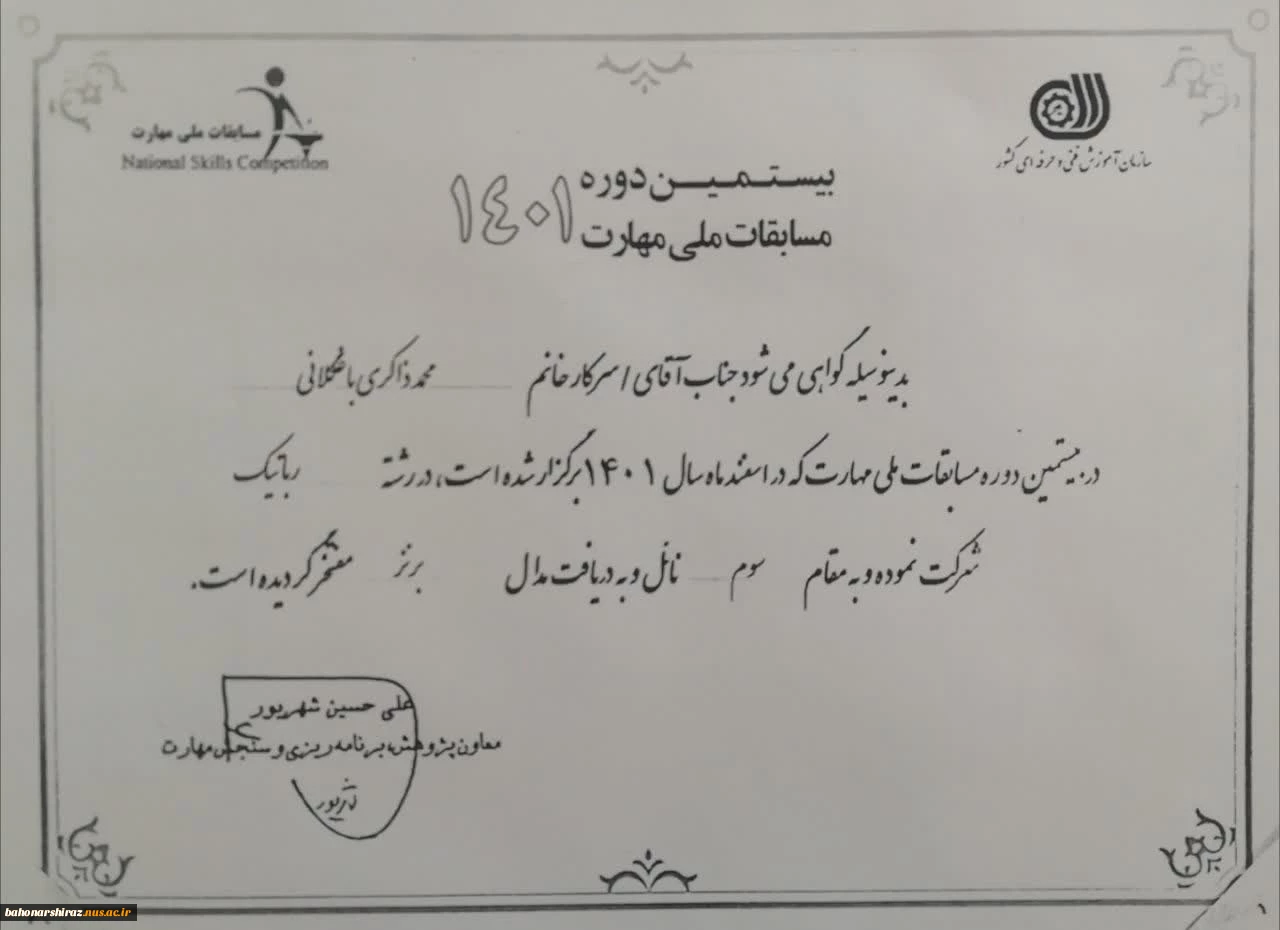 سازمان آموزش فنی و حرفه ای کشور
مسابقات ملی مهارت
National Skills Competition
بیستمین دوره
مسابقات ملی مهارت ۱۴۰۱
بدینوسیله گواهی می شود جناب آقای / سرکار خانم محمد ذاکری باصکلانی
در بیستمین دوره مسابقات ملی مهارت که در اسفند ماه سال ۱۴۰۱ برگزار شده است، در رشته رباتیک
شرکت نموده و به مقام سوم نائل و به دریافت مدال برنز مفتخر گردیده است.
علی حسین شهریور
معاون پژوهش، برنامه ریزی و سنجش مهارت
bahonarshiraz.nus.ac.ir
۱